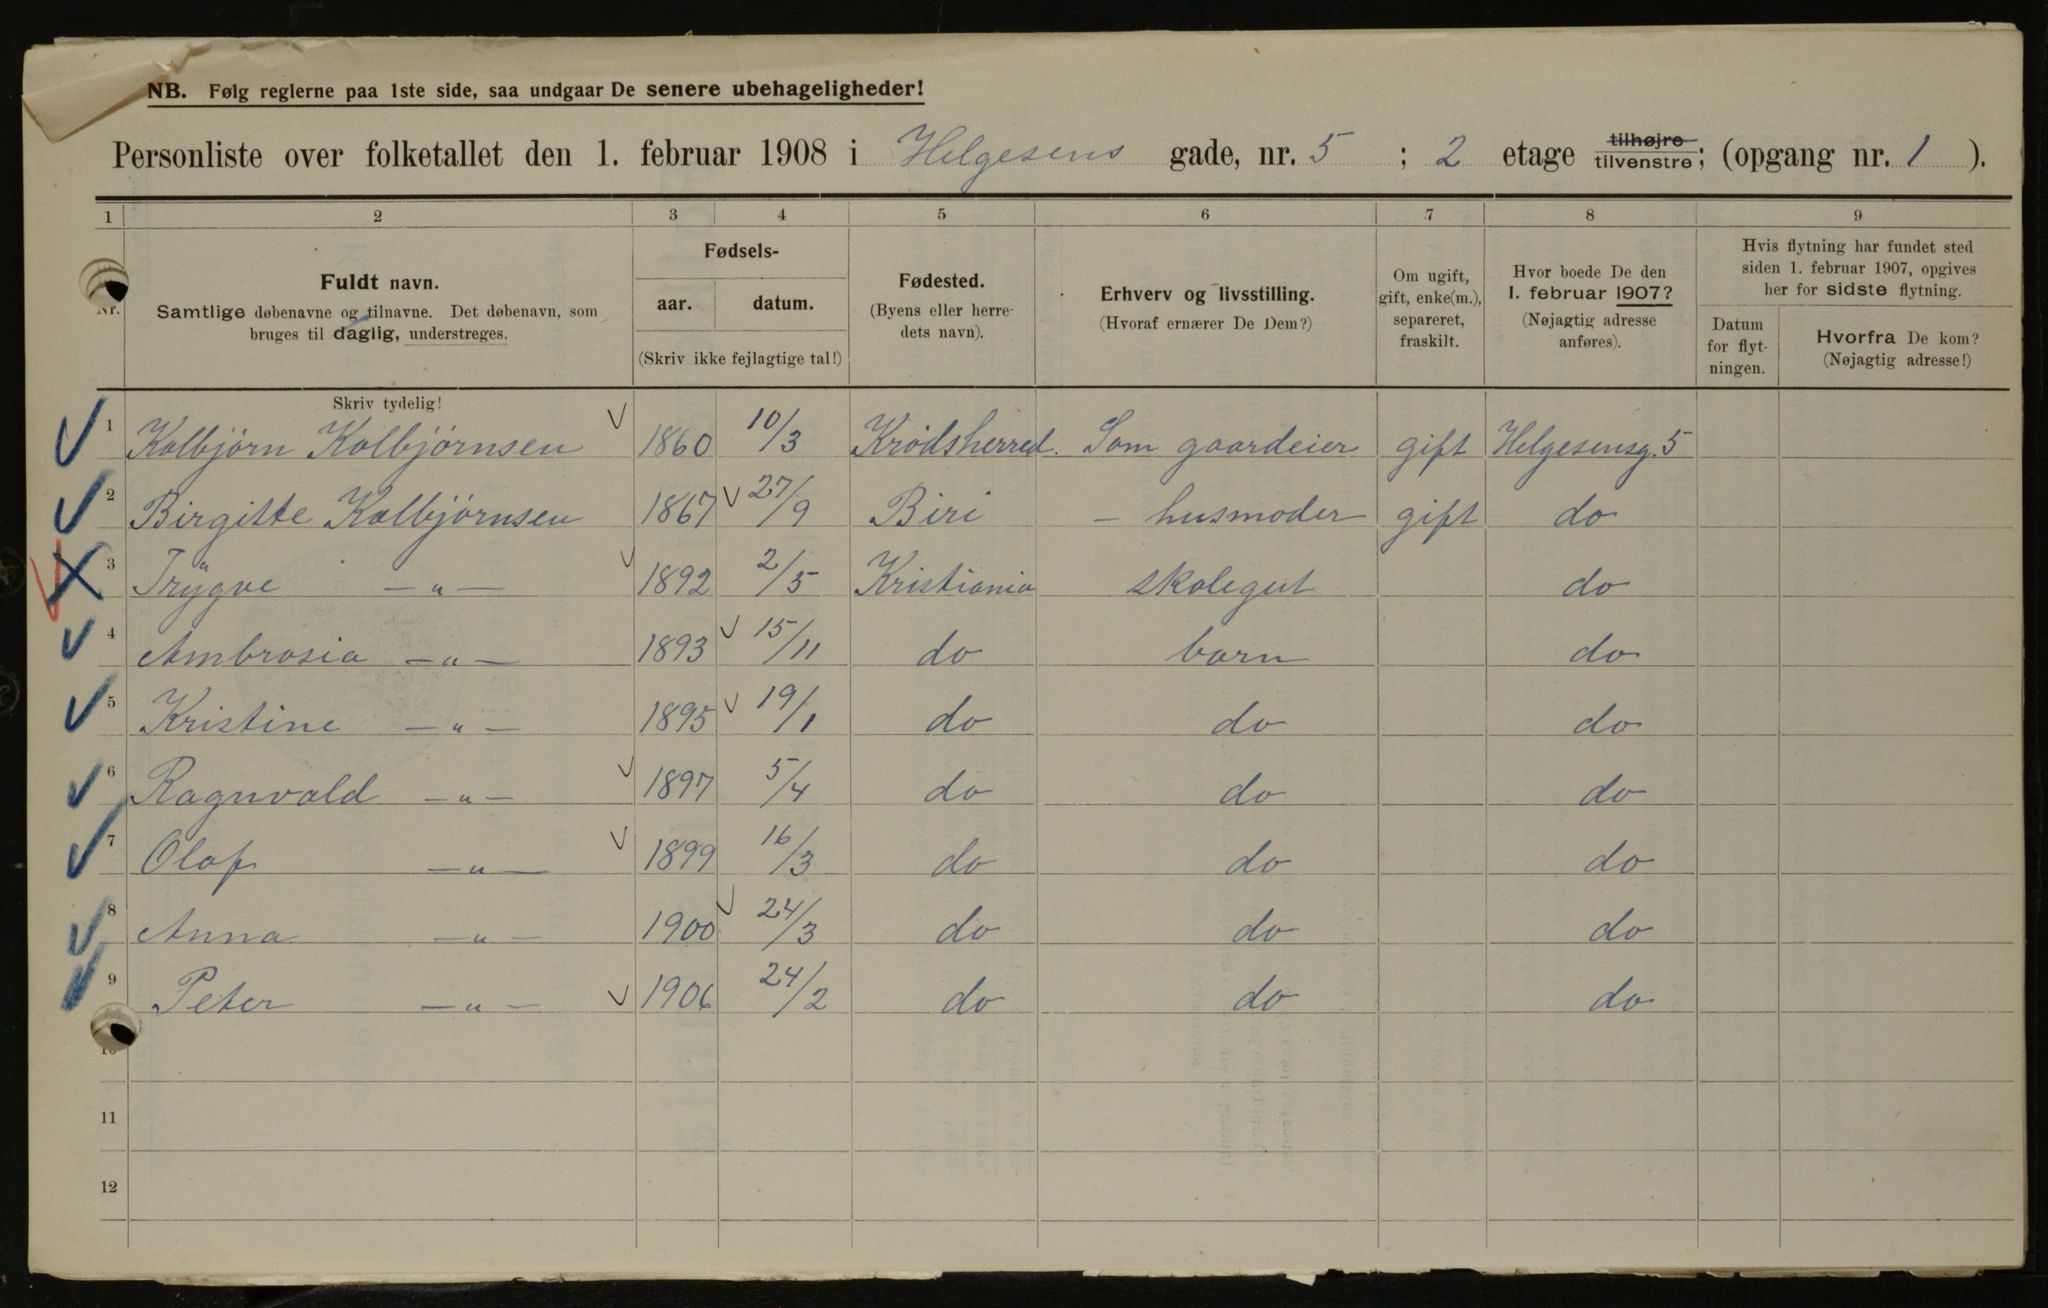 NB. Følg reglerne paa 1ste side, saa undgaar De senere ubehageligheder!
Personliste over folketallet den 1. februar 1908 i Helgesens gade, nr. 5 ; 2 etage tilhøjre tilvenstre; (opgang nr. 1 ).
1 2 3 4 5 6 7 8 9
Nr.
Fuldt navn.
Samtlige døbenavne og tilnavne. Det døbenavn, som
bruges til daglig, understreges.
Fødsels-
aar. datum.
(Skriv ikke fejlagtige tal!)
Fødested.
(Byens eller herre-
dets navn).
Erhverv og livsstilling.
(Hvoraf ernærer De Dem?)
Om ugift,
gift, enke(m.),
separeret,
fraskilt.
Hvor boede De den
1. februar 1907?
(Nøjagtig adresse
anføres).
Hvis flytning har fundet sted
siden 1. februar 1907, opgives
her for sidste flytning.
Datum
for flyt-
ningen.
Hvorfra De kom?
(Nøjagtig adresse!)
Skriv tydelig!
1 Kolbjörn Kolbjörnsen 1860 10/3 Krödsherred. Som gaardeier gift Helgesensg. 5
2 Birgitte Kolbjörnsen 1867 27/9 Biri – husmoder gift do
3 Trygve — „ — 1892 2/5 Kristiania skolegut do
4 Ambrosia — „ — 1893 15/11 do barn do
5 Kristine — „ — 1895 19/1 do do do
6 Ragnvald — „ — 1897 5/4 do do do
7 Olaf — „ — 1899 16/3 do do do
8 Anna — „ — 1900 24/3 do do do
9 Peter — „ — 1906 24/2 do do do
10
11
12